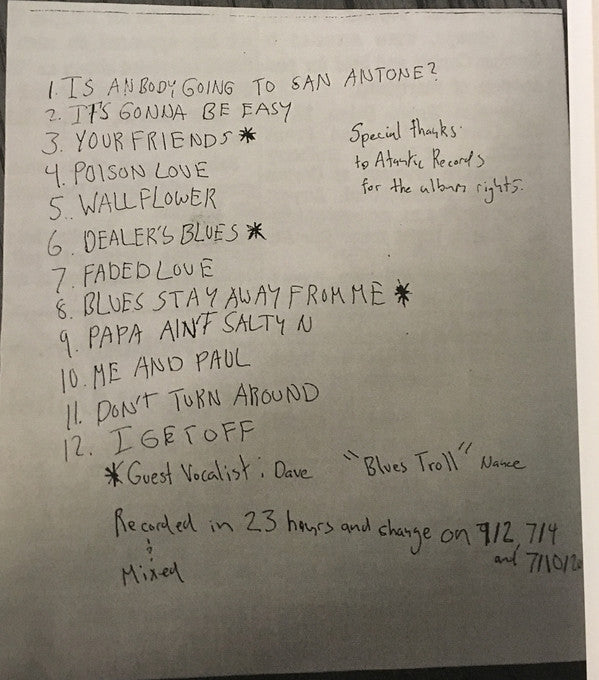 1. IS ANBODY GOING TO SAN ANTONE?
2. IT'S GONNA BE EASY
3. YOUR FRIENDS *
4. POISON LOVE
5. WALLFLOWER
6. DEALER'S BLUES *
7. FADED LOVE
8. BLUES STAY AWAY FROM ME *
9. PAPA AIN'T SALTY N
10. ME AND PAUL
11. DON'T TURN AROUND
12. I GET OFF
Special thanks
to Atantic Records
for the album rights.
* Guest Vocalist: Dave "Blues Troll" Nance
Recorded in 23 hours and change on 7/2, 7/4
and 7/10/20
Mixed